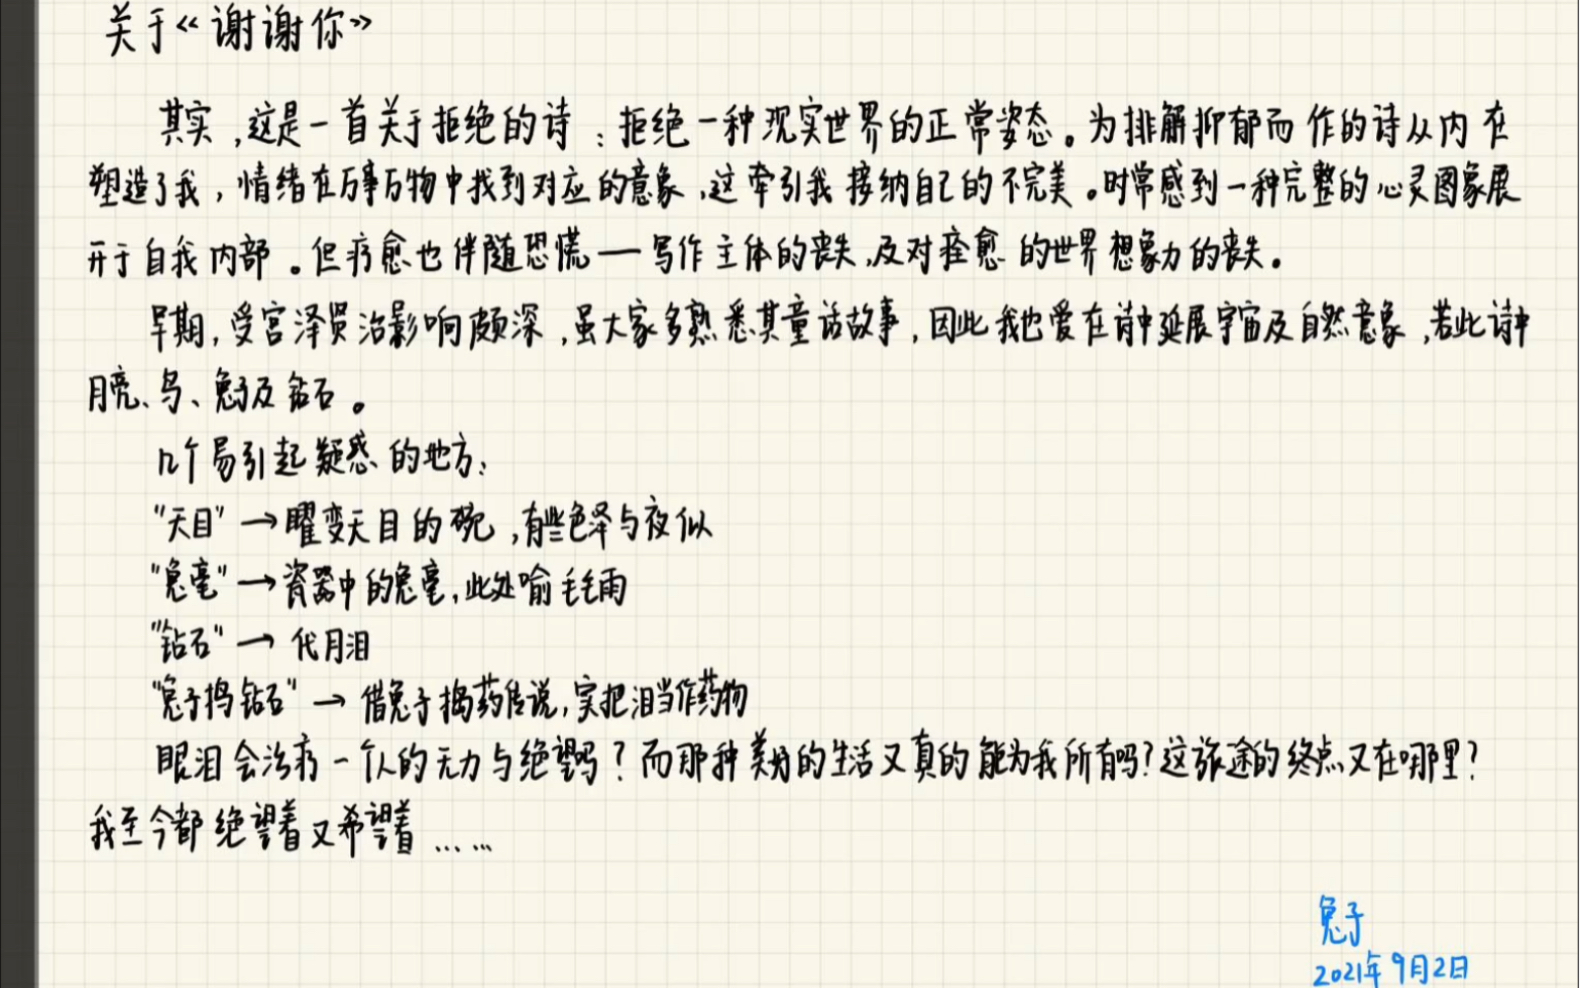 关于《谢谢你》
其实,这是一首关于拒绝的诗：拒绝一种现实世界的正常姿态。为排解抑郁而作的诗从内在
塑造了我，情绪在万事万物中找到对应的意象，这牵引我接纳自己的不完美。时常感到一种完整的心灵图象展
开于自我内部。但疗愈也伴随恐慌——写作主体的丧失,及对痊愈的世界想象力的丧失。
早期,受宫泽贤治影响颇深,虽大家多熟悉其童话故事,因此我也爱在诗中延展宇宙及自然意象,若此诗中
月亮、鸟、兔子及钻石。
几个易引起疑惑的地方：
"天目"→曜变天目的碗,有些色泽与夜似
"兔毫"→瓷器中的兔毫,此处喻毛毛雨
"钻石"→代月泪
"兔子捣钻石"→借兔子捣药传说,实把泪当作药物
眼泪会治疗一个人的无力与绝望吗？而那种美好的生活又真的能为我所有吗?这旅途的终点又在哪里？
我至今都绝望着又希望着……
兔子
2021年9月2日